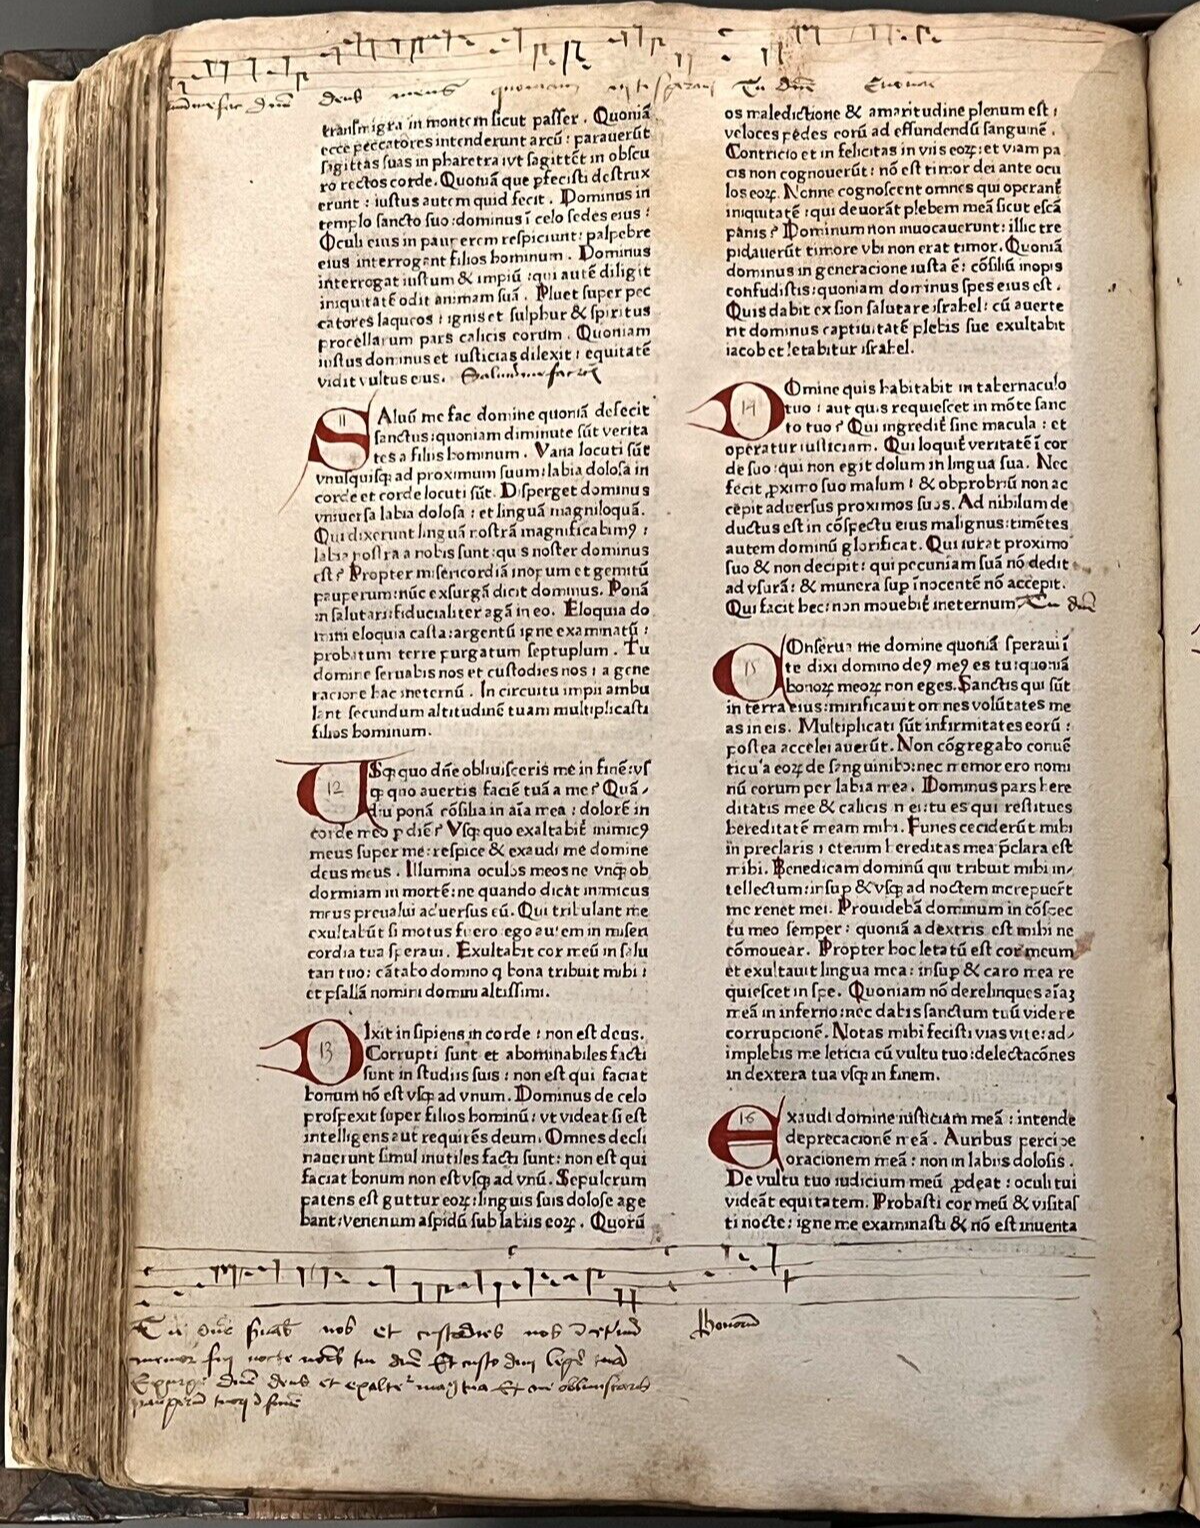 deus meus quoniam in te speravi Tu dñe Euouae
transmigra in montem sicut passer . Quoniã
ecce peccatores intenderunt arcũ : parauerũt
sagittas suas in pharetra : vt sagittẽt in obscu
ro rectos corde. Quoniã que pfecisti destrux
erunt : iustus autem quid fecit . Dominus in
templo sancto suo : dominus ĩ celo sedes eius :
Oculi eius in pauperem respiciunt : palpebre
eius interrogant filios hominum . Dominus
interrogat iustum & impiũ : qui autẽ diligit
iniquitatẽ odit animam suã . Pluet super pec
catores laqueos : ignis et sulphur & spiritus
procellarum pars calicis eorum . Quoniam
iustus dominus et iusticias dilexit : equitatẽ
vidit vultus eius. Saluum me fac
11
SAluũ me fac domine quoniã defecit
sanctus : quoniam diminute sũt verita
tes a filiis hominum . Vana locuti sũt
vnusquisq; ad proximum suum : labia dolosa in
corde et corde locuti sũt. Disperget dominus
vniuersa labia dolosa : et linguã magniloquã.
Qui dixerunt linguã nostrã magnificabimꝰ :
labia nostra a nobis sunt : quis noster dominus
est ? Propter misericordiã inopum et gemitũ
pauperum : nũc exsurgã dicit dominus. Ponã
in salutari : fiducialiter agã in eo. Eloquia do
mini eloquia casta : argentũ igne examinatũ :
probatum terre purgatum septuplum . Tu
domine seruabis nos et custodies nos : a gene
racione hac ineternũ . In circuitu impii ambu
lant secundum altitudinẽ tuam multiplicasti
filios hominum.
12
VSq; quo dñe obliuisceris me in finẽ : vs
q; quo auertis faciẽ tuã a me ? Quã
diu ponã cõsilia in aĩa mea : dolorẽ in
corde meo p diẽ ? Vsq; quo exaltabit̃ inimicꝰ
meus super me : respice & exaudi me domine
deus meus . Illumina oculos meos ne vnq̃ ob
dormiam in mortẽ : ne quando dicat inimicus
meus preualui aduersus eũ. Qui tribulant me
exultabũt si motus fuero : ego autem in miseri
cordia tua speraui . Exultabit cor meũ in salu
tari tuo : cãtabo domino q bona tribuit mihi :
et psallã nomini domini altissimi.
13
DIxit insipiens in corde : non est deus.
Corrupti sunt et abominabiles facti
sunt in studiis suis : non est qui faciat
bonum nõ est vsq; ad vnum. Dominus de celo
prospexit super filios hominũ : vt videat si est
intelligens aut requirẽs deum. Omnes decli
nauerunt simul inutiles facti sunt : non est qui
faciat bonum non est vsq; ad vnũ. Sepulcrum
patens est guttur eoꝝ : linguis suis dolose age
bant : venenum aspidũ sub labiis eoꝝ . Quorũ
os maledictione & amaritudine plenum est :
veloces pedes eorũ ad effundendũ sanguinẽ .
Contricio et infelicitas in viis eoꝝ : et viam pa
cis non cognouerũt : nõ est timor dei ante ocu
los eoꝝ. Nonne cognoscent omnes qui operant̃
iniquitatẽ : qui deuorãt plebem meã sicut escã
panis ? Dominum non inuocauerunt : illic tre
pidauerũt timore vbi non erat timor. Quoniã
dominus in generacione iusta ẽ : cõsiliũ inopis
confudistis : quoniam dominus spes eius est .
Quis dabit ex sion salutare israhel : cũ auerte
rit dominus captiuitatẽ plebis sue exultabit
iacob et letabitur israhel.
14
DOmine quis habitabit in tabernaculo
tuo : aut quis requiescet in mõte sanc
to tuo ? Qui ingredit̃ sine macula : et
operatur iusticiam. Qui loquit̃ veritatẽ ĩ cor
de suo : qui non egit dolum in lingua sua. Nec
fecit ꝓximo suo malum : & obprobriũ non ac
cepit aduersus proximos suos. Ad nihilum de
ductus est in cõspectu eius malignus : timẽtes
autem dominũ glorificat. Qui iurat proximo
suo & non decipit : qui pecuniam suã nõ dedit
ad vsurã : & munera sup ĩnocentẽ nõ accepit.
Qui facit hec : non mouebit̃ ineternum. Tu dñe
15
COnserua me domine quoniã speraui ĩ
te dixi domino deꝰ meꝰ es tu : quoniã
bonoꝝ meoꝝ non eges. Sanctis qui sũt
in terra eius : mirificauit omnes volũtates me
as in eis. Multiplicati sũt infirmitates eorũ :
postea accelerauerũt. Non cõgregabo conuẽ
ticula eoꝝ de sanguinibꝰ : nec memor ero nomi
nũ eorum per labia mea . Dominus pars here
ditatis mee & calicis mei : tu es qui restitues
hereditatẽ meam mihi. Funes ceciderũt mihi
in preclaris : etenim hereditas mea p̃clara est
mihi. Benedicam dominũ qui tribuit mihi in
tellectum : insup & vsq; ad noctem increpuert̃
me renes mei. Prouidebã dominum in cõspec
tu meo semper : quoniã a dextris est mihi ne
cõmouear. Propter hoc letatũ est cor meum
et exultauit lingua mea : insup & caro mea re
quiescet in spe. Quoniam nõ derelinques aĩaʒ
meã in inferno : nec dabis sanctum tuũ videre
corrupcionẽ. Notas mihi fecisti vias vite : ad
implebis me leticia cũ vultu tuo : delectacõnes
in dextera tua vsq; in finem.
16
Exaudi domine iusticiam meã : intende
deprecacionẽ meã . Auribus percipe
oracionem meã : non in labiis dolosis .
De vultu tuo iudicium meũ ꝓdeat : oculi tui
videãt equitatem. Probasti cor meũ & visitas
ti nocte : igne me examinasti & nõ est inuenta
Tu dñe nos et custodies nos
memor fui nocte tui dñe Et custo legẽ tuã
Exurge dñe deus et exaltet man tua Et ne obliuiscaris
pauperum